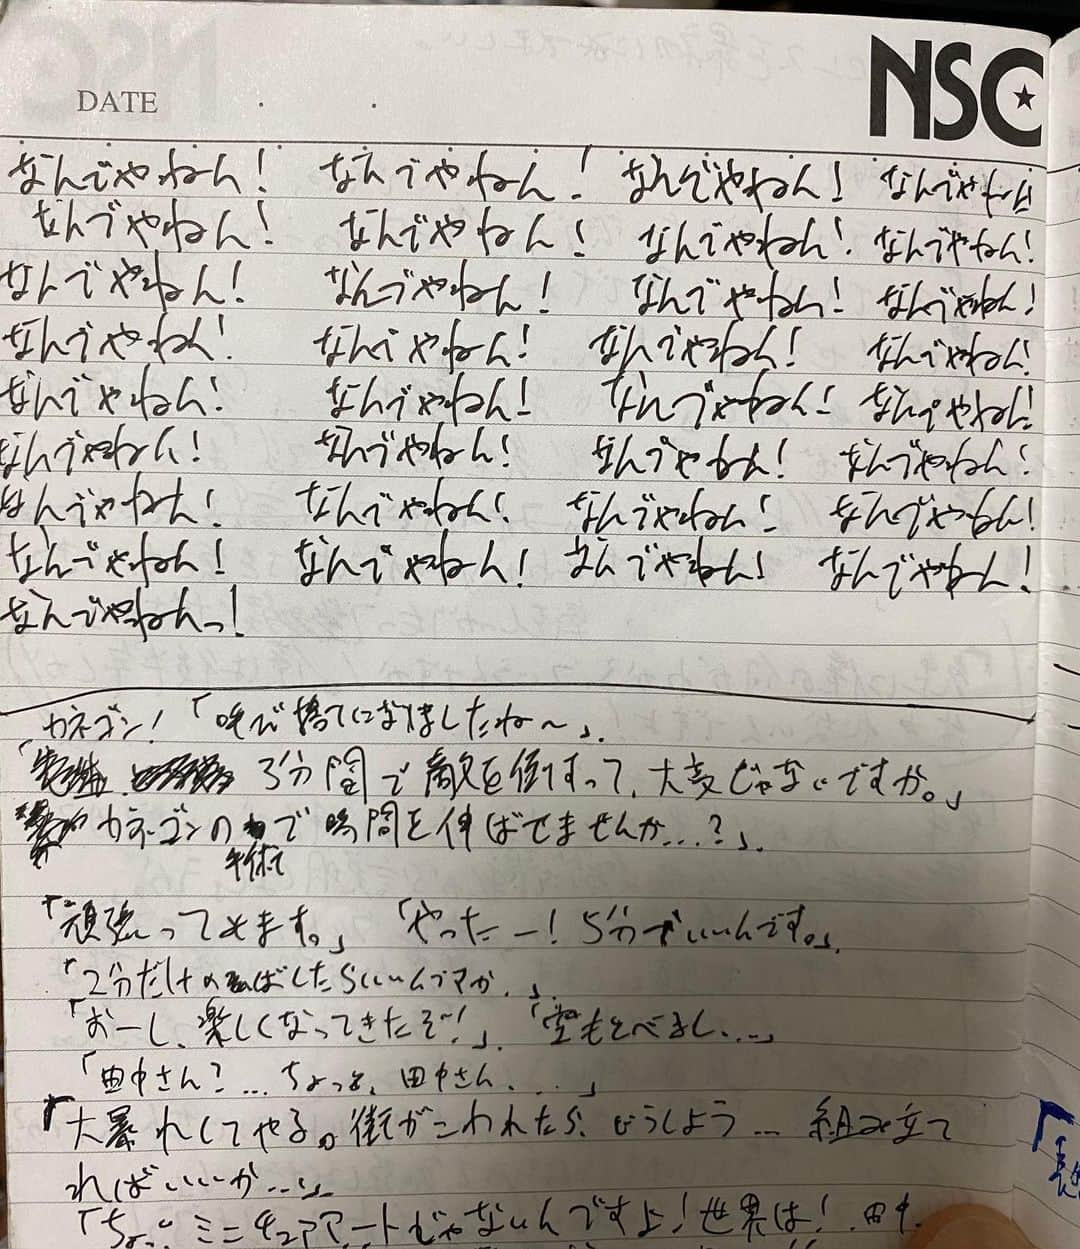 NSC
DATE
なんでやねん! なんでやねん! なんでやねん! なんでやねん!
なんでやねん! なんでやねん! なんでやねん! なんでやねん!
なんでやねん! なんでやねん! なんでやねん! なんでやねん!
なんでやねん! なんでやねん! なんでやねん! なんでやねん!
なんでやねん! なんでやねん! なんでやねん! なんでやねん!
なんでやねん! なんでやねん! なんでやねん! なんでやねん!
なんでやねん! なんでやねん! なんでやねん! なんでやねん!
なんでやねん! なんでやねん! なんでやねん! なんでやねん!
なんでやねんっ!
カネゴン!「呼び捨てになりましたね〜」.
「3分間で敵を倒すって、大変じゃないですか。」
カネゴンの で時間を伸ばせませんか...?」.
手術
「頑張ってみます。」「やったー! 5分でいいんです。」.
「2分だけのばしたらいいんですか.」.
「おーし、楽しくなってきたぞ!」.「空もとべるし...」
「田中さん?...ちょっと、田中さん....」
「大暴れしてやる。街がこわれたら、どうしよう... 組み立て
ればいいか...」
「ちょっ ミニチュアアートじゃないんですよ! 世界は! 田中